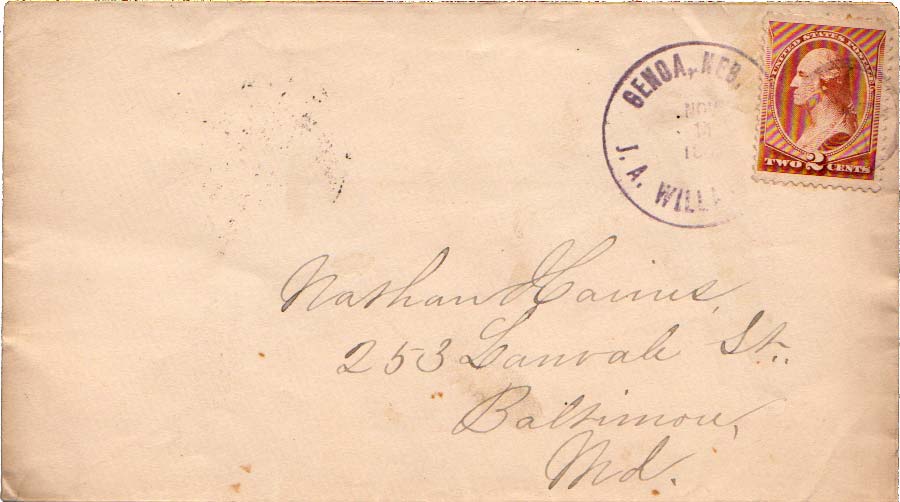 GENOA, NEB.
NOV
J. A.
UNITED STATES POSTAGE
TWO 2 CENTS
Nathan Haines,
253 Lanvale St.
Baltimore,
Md.